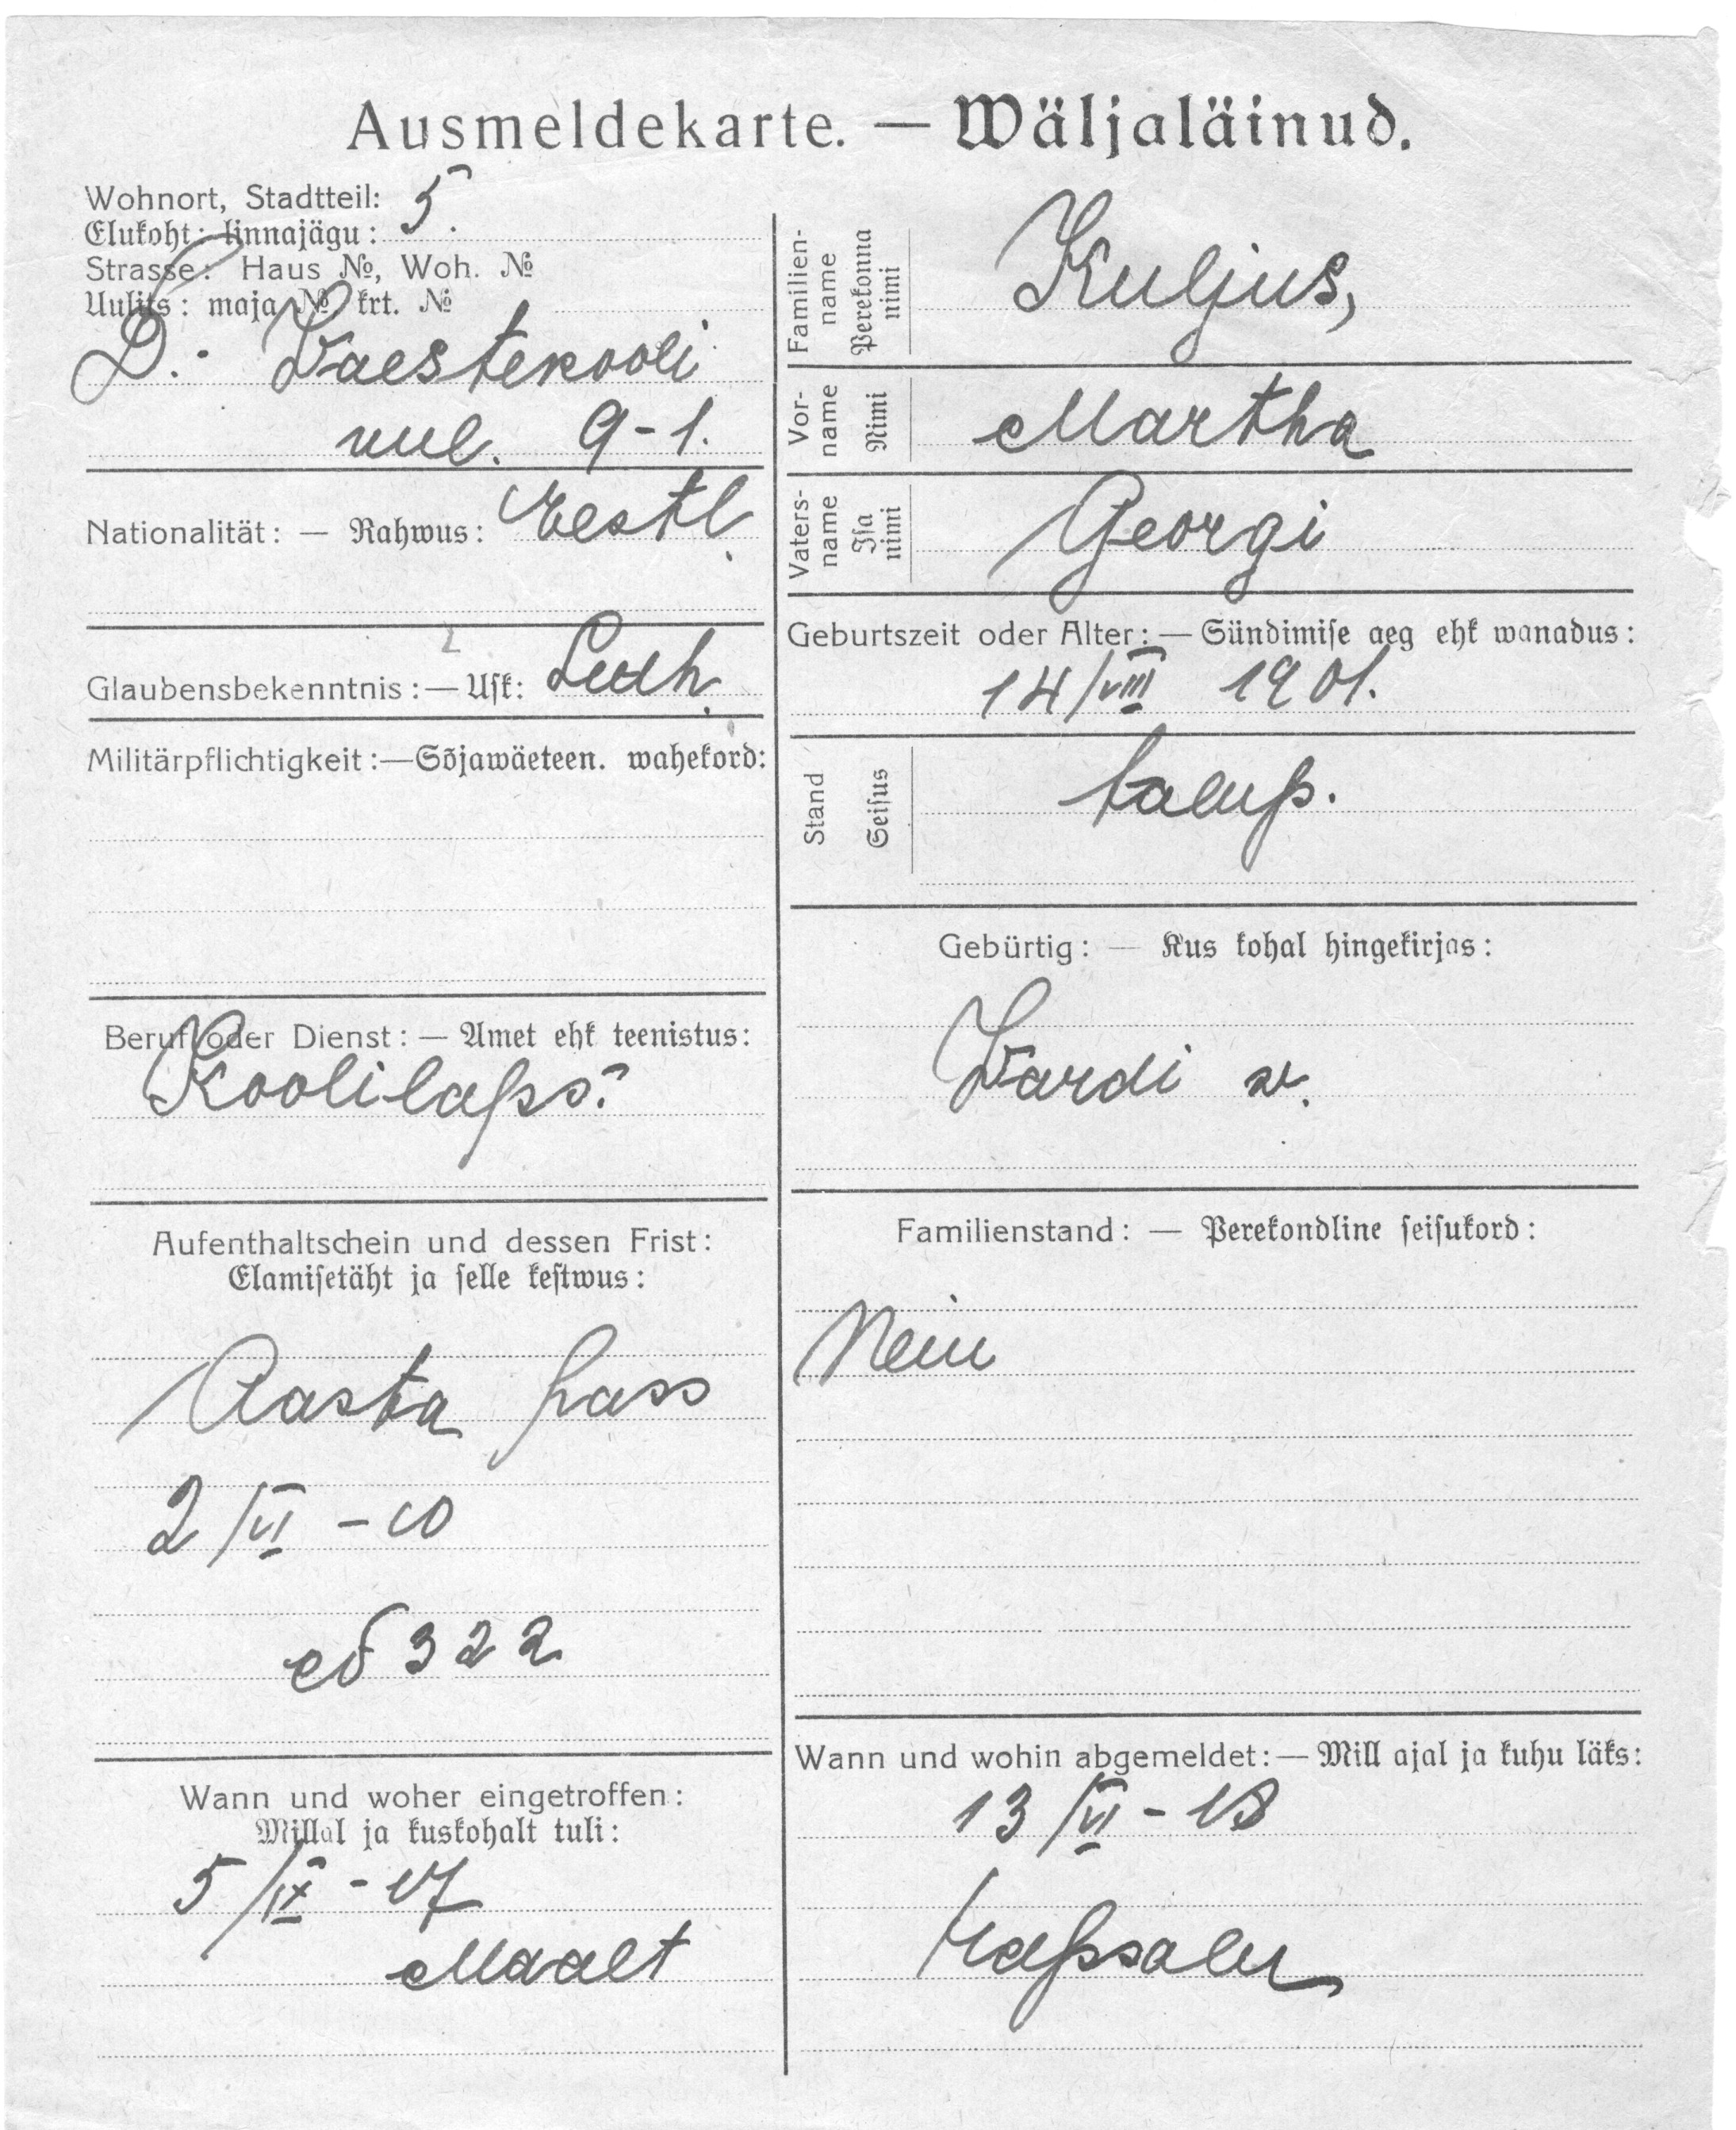 Ausmeldekarte. — Wäljaläinud.
Wohnort, Stadtteil: 5.
Elukoht: linnajägu:
Strasse: Haus №, Woh. №
Uulits: maja № krt. №
D. Vaestekooli
uul. 9-1.
Nationalität: — Rahwus: Eestl.
Glaubensbekenntnis:— Usk: Luth.
Militärpflichtigkeit:—Sõjawäeteen. wahekord:
Beruf oder Dienst: — Amet ehk teenistus:
Koolilaps.
Aufenthaltschein und dessen Frist:
Elamisetäht ja selle kestwus:
Aasta pass
2/VI - 10
№ 322
Wann und woher eingetroffen:
Millal ja kuskohalt tuli:
5/IX - 17
Maalt
Familien-
name
Perekonna
nimi
Kuljus,
Vor-
name
Nimi
Martha
Vaters-
name
Isa
nimi
Georgi
Geburtszeit oder Alter: — Sündimise aeg ehk wanadus:
14/VIII 1901.
Stand
Seisus
talup.
Gebürtig: — Kus kohal hingekirjas:
Vardi v.
Familienstand: — Perekondline seisukord:
Nein
Wann und wohin abgemeldet:— Mill ajal ja kuhu läks:
13/VI - 18
Hapsalu